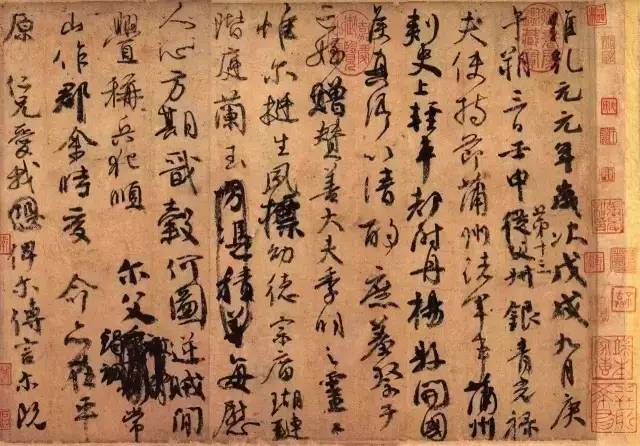 維乾元元年歲次戊戌九月庚
午朔三日壬申第十三從父銀青光祿
夫使持節蒲州諸軍事蒲州
刺史上輕車都尉丹楊縣開國
侯真卿以清酌庶羞祭于
亡姪贈贊善大夫季明之靈曰
惟爾挺生夙標幼德宗廟瑚璉
階庭蘭玉方憑積善每慰
人心方期戩穀何圖逆賊間
釁稱兵犯順爾父竭誠常
山作郡余時受命亦在平
原仁兄愛我俾爾傳言爾既